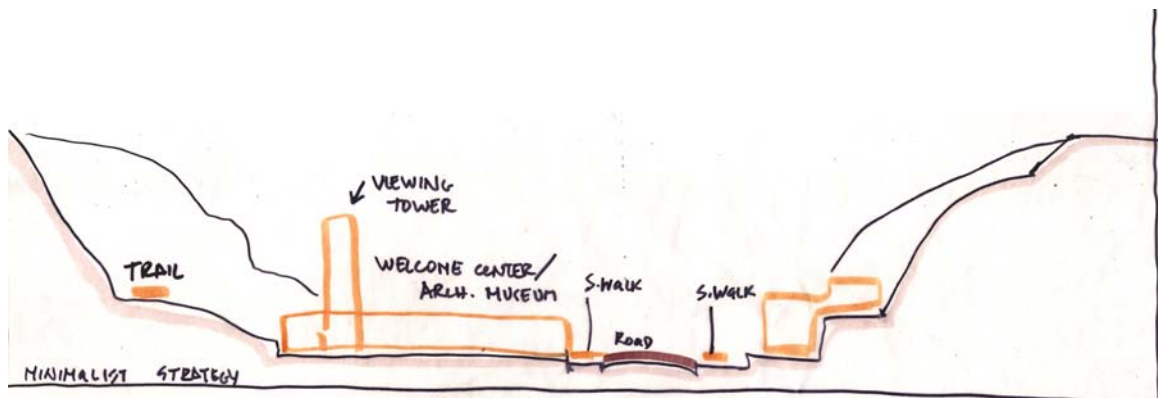 VIEWING
TOWER
TRAIL
WELCOME CENTER/
ARCH. MUSEUM
S.WALK
S.WALK
ROAD
MINIMALIST STRATEGY